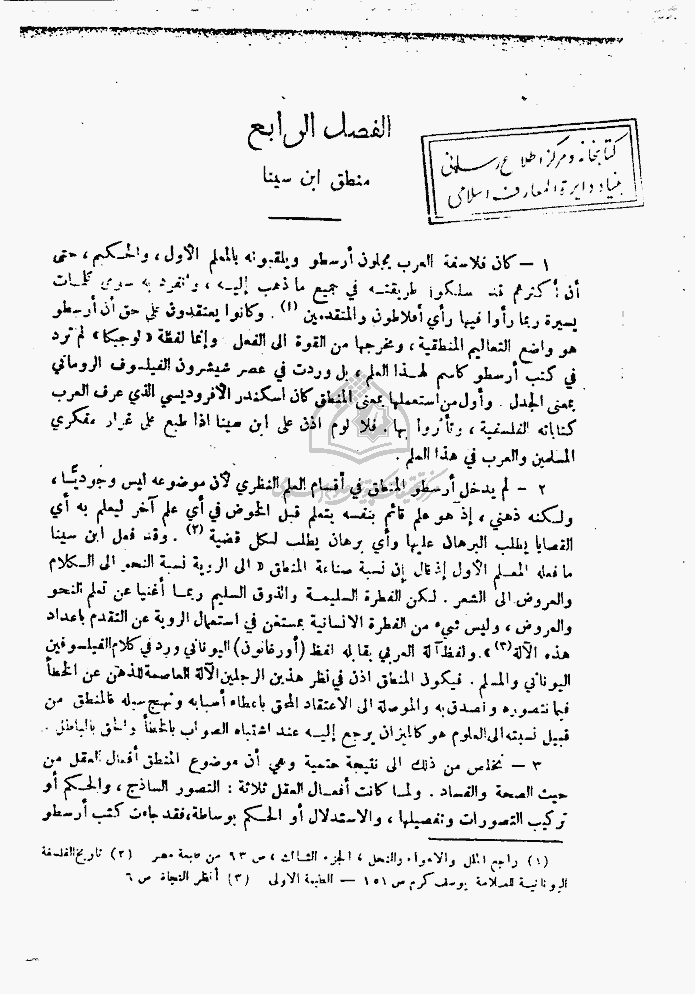 الفصل الرابع
منطق ابن سينا
كتابخانه ومركز اطلاع رسانى
بنياد دايرة المعارف اسلامى
١ — كان فلاسفة العرب يجلون أرسطو ويلقبونه بالمعلم الأول، والحكيم، حتى
أن أكثرهم قد سلكوا طريقته في جميع ما ذهب إليه، وانفرد به سوى كلمات
يسيرة ربما رأوا فيها رأي أفلاطون والمتقدمين (١). وكانوا يعتقدون على حق أن أرسطو
هو واضع التعاليم المنطقية، ومخرجها من القوة الى الفعل وإنما لفظة «لوجيكا» لم ترد
في كتب أرسطو كاسم لهذا العلم، بل وردت في عصر شيشرون الفيلسوف الروماني
بمعنى الجدل. وأول من استعملها بمعنى المنطق كان اسكندر الافروديسي الذي عرف العرب
كتاباته الفلسفية، وتأثروا بها. فلا لوم اذن على ابن سينا اذا طبع على غرار مفكري
المسلمين والعرب في هذا العلم.
٢ — لم يدخل أرسطو المنطق في أقسام العلم النظري لأن موضوعه ليس وجوديًا،
ولكنه ذهني، إذ هو علم قائم بنفسه يتعلم قبل الخوض في أي علم آخر ليعلم به أي
القضايا يطلب البرهان عليها وأي برهان يطلب لكل قضية (٢). وقد فعل ابن سينا
ما فعله المعلم الأول إذ قال إن نسبة صناعة المنطق «الى الروية نسبة النحو الى الكلام
والعروض الى الشعر. لكن الفطرة السليمة والذوق السليم ربما أغنيا عن تعلم النحو
والعروض، وليس شيء من الفطرة الانسانية بمستغن في استعمال الروية عن التقدم باعداد
هذه الآلة (٣)». ولفظ آلة العربي يقابله لفظ (أورغانون) اليوناني ورد في كلام الفيلسوفين
اليوناني والمسلم. فيكون المنطق اذن في نظر هذين الرجلين الآلة العاصمة للذهن عن الخطأ
فيما نتصوره ونصدق به والموصلة الى الاعتقاد الحق باعطاء أسبابه ونهج سبله فالمنطق من
قبيل نسبته الى العلوم هو كالميزان يرجع إليه عند اشتباه الصواب بالخطأ والحق بالباطل.
٣ — نخلص من ذلك الى نتيجة حتمية وهي أن موضوع المنطق أفعال العقل من
حيث الصحة والفساد. ولما كانت أفعال العقل ثلاثة: التصور الساذج، والحكم أو
تركيب التصورات وتفصيلها، والاستدلال أو الحكم بوساطة، فقد جاءت كتب أرسطو
(١) راجع الملل والاهواء والنحل، الجزء الثالث، ص ٦٣ من طبعة مصر (٢) تاريخ الفلسفة
اليونانية للعلامة يوسف كرم ص ١٥١ — الطبعة الاولى (٣) أنظر النجاة ص ٦